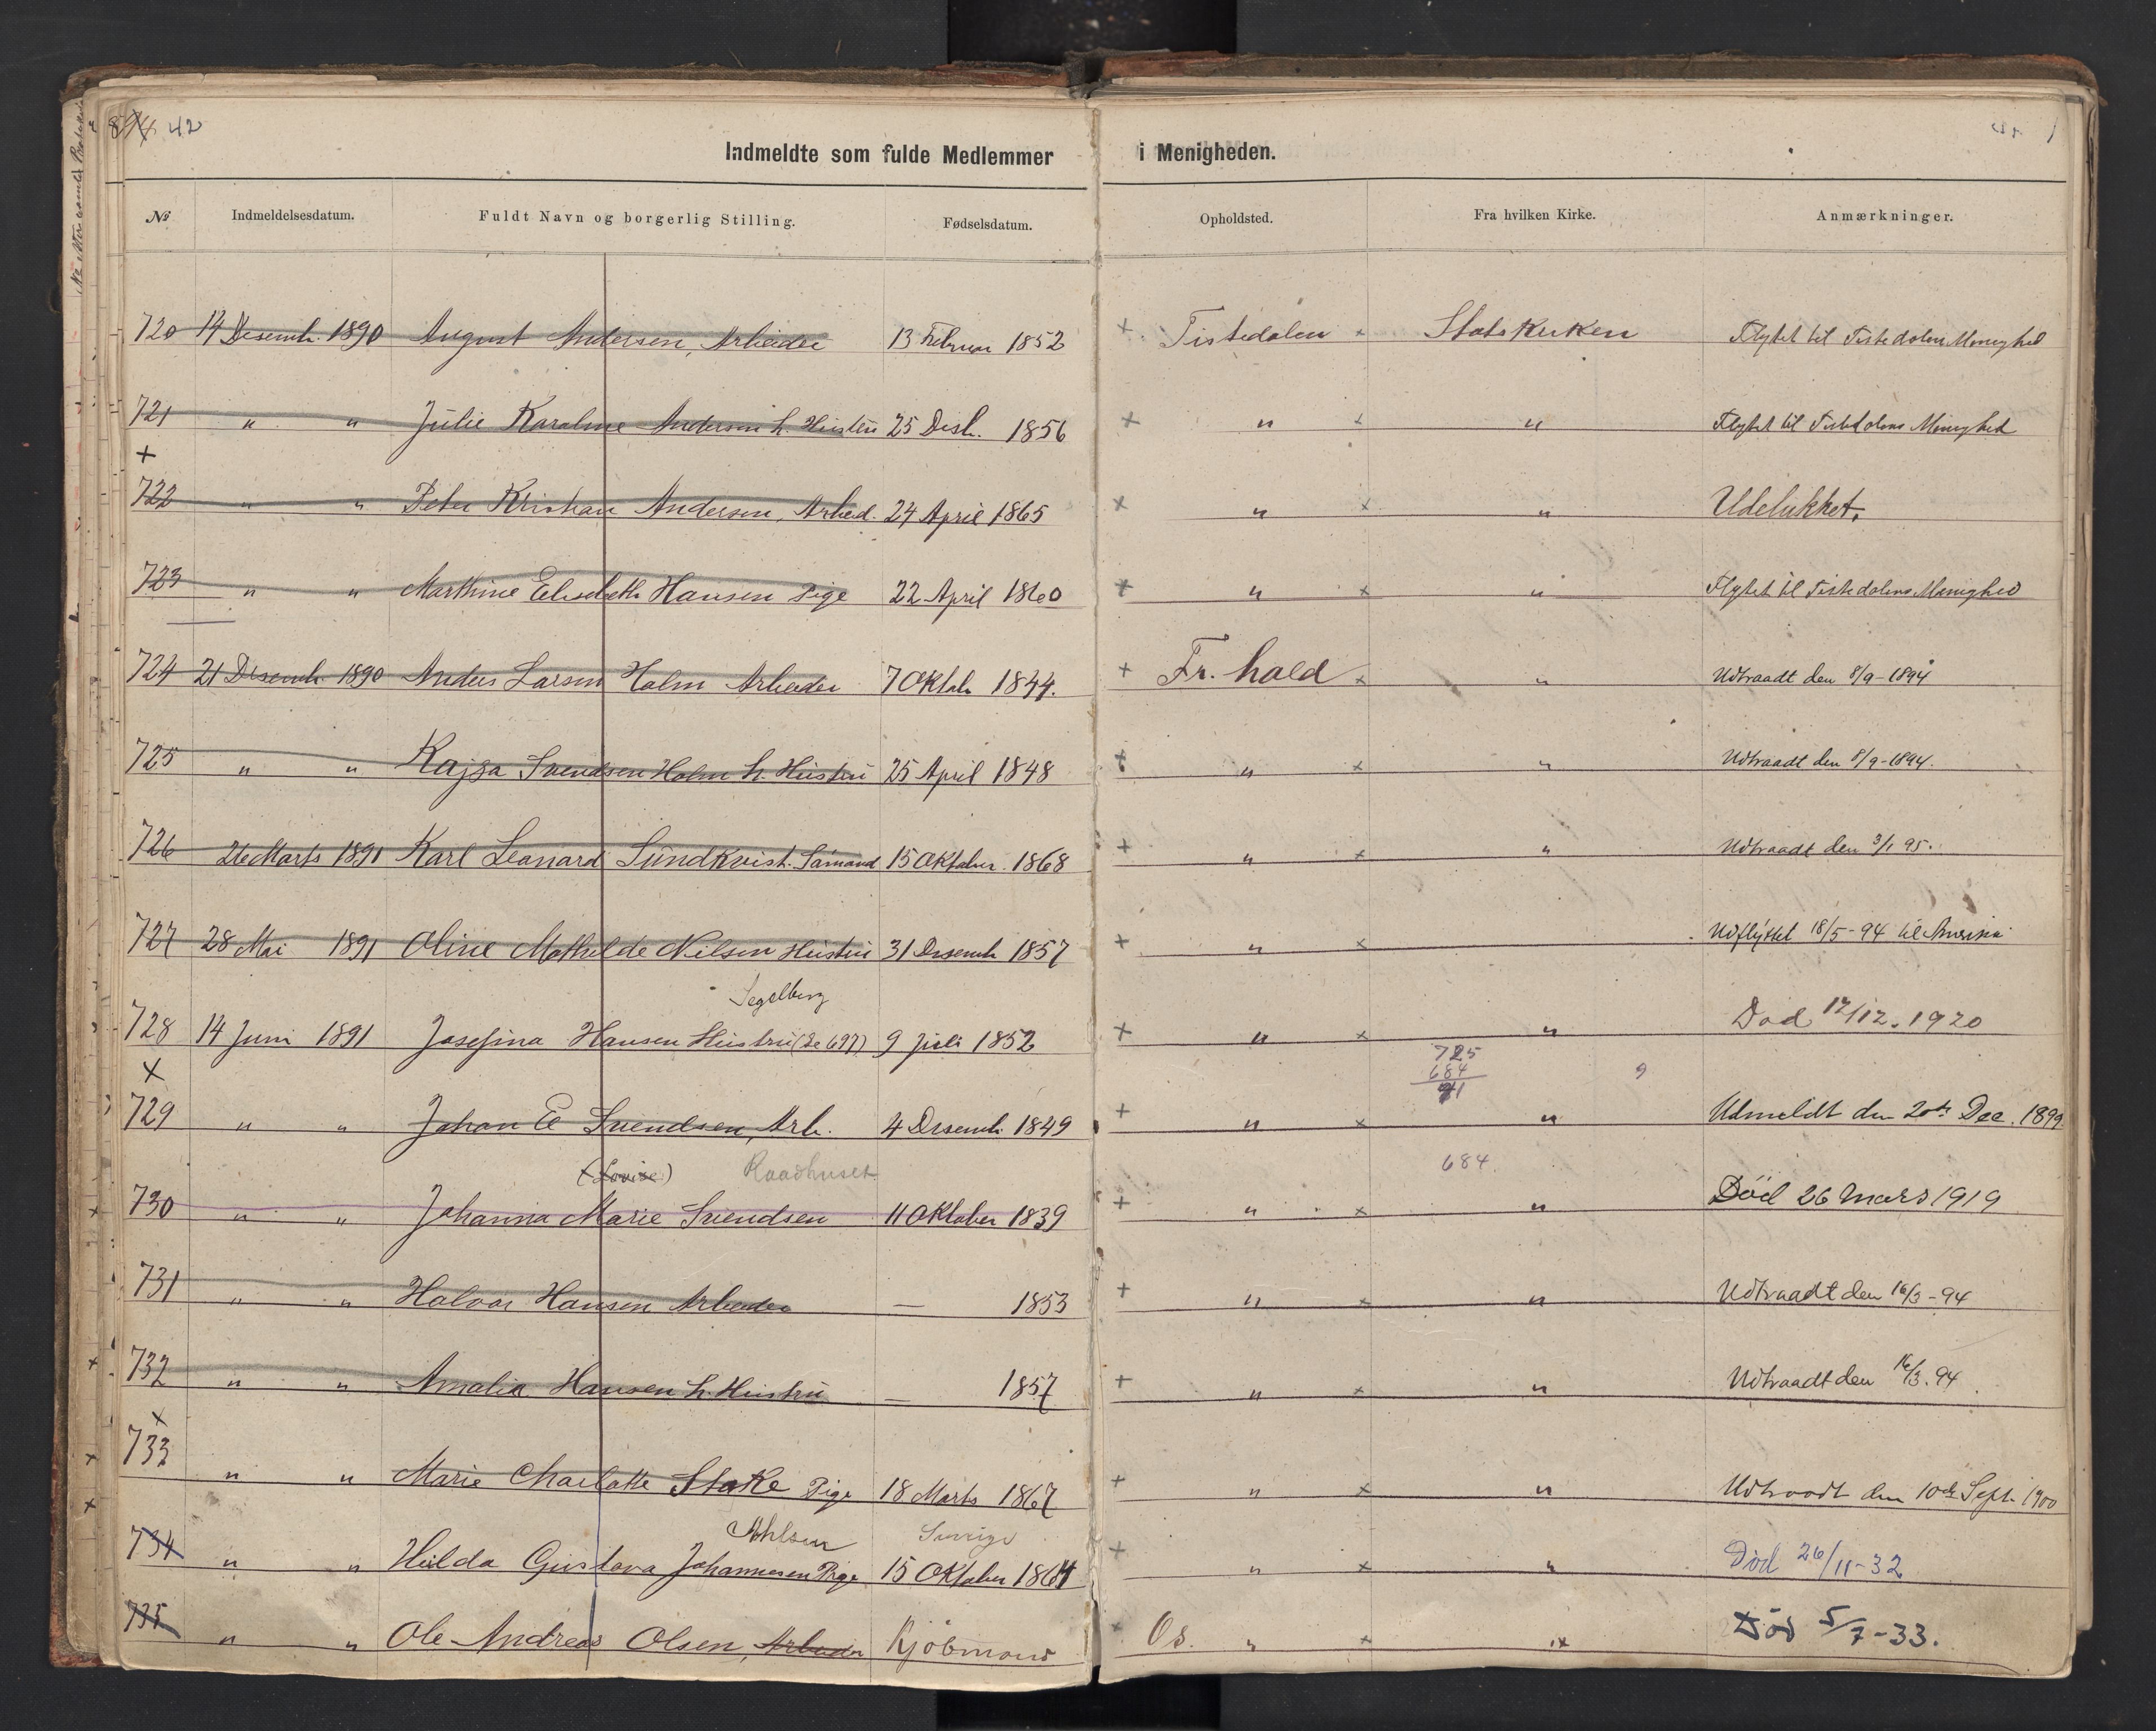 42
Indmeldte som fulde Medlemmer i Menigheden.
No Indmeldelsesdatum. Fuldt Navn og borgerlig Stilling. Fødselsdatum. Opholdsted. Fra hvilken Kirke. Anmærkninger.
720 14 Desemb. 1890 August Andersen, Arbeider 13 Februar 1852 + Tistedalen + Statskirken Flytet til Tistedalens Menighed
721 " " Julie Karoline Andersen h. Hustru 25 Desb. 1856 + " + " Flytet til Tistedalens Menighed
+
722 " " Peter Kristian Andersen, Arbeid. 24 April 1865 + " + " Udelukket.
723 " " Marthine Elisabeth Hansen Pige 22 April 1860 + " + " Flytet til Tistedalens Menighed
724 21 Desemb. 1890 Anders Larsen Holm Arbeider 7 Oktob 1844. + Fr. hald + " Udtraadt den 8/9-1894
725 " " Kajsa Svendsen Holm h. Hustru 25 April 1848 + " + " Udtraadt den 8/9-1894.
726 26 Marts 1891 Karl Leonard Sundkvist. Sømand 15 Oktober. 1868 + " + " Udtraadt den 3/1 95.
727 28 Mai 1891 Oline Mathilde Nilsen Hustru 31 Desemb 1857 + " + Udflyttet 18/5-94 til Amerika
Segelberg
728 14 Juni 1891 Josefina Hansen Hustru (Se 697) 9 Juli 1852 + " + " Død 17/12. 1920
725
684
41
9
X
729 " " Johan E Svendsen, Arb. 4 Desemb. 1849 + " + " Udmeldt den 20de Dec. 1899
(Lovise) Raadhuset 684.
730 " " Johanna Marie Svendsen 11 Oktober 1839 + " + " Död 26 Mars 1919
731 " " Halvor Hansen Arbeider — 1853 + " + " Udtraadt den 16/3-94
732 " " Amalia Hansen h. Hustru — 1857 + " + " Udtraadt den 16/3. 94
X
733 " " Marie Charlotte Stake Pige 18 Marts 1867 + " + " Udtraadt den 10de Sept. 1900
Ahlsen Sverige
734 " " Hilda Gustava Johannesen Pige 15 Oktober 1864 + " + " Död 26/11-32
735 " " Ole Andreas Olsen, Arbeider Kjöbmand + Os. " + " Död 5/7-33.